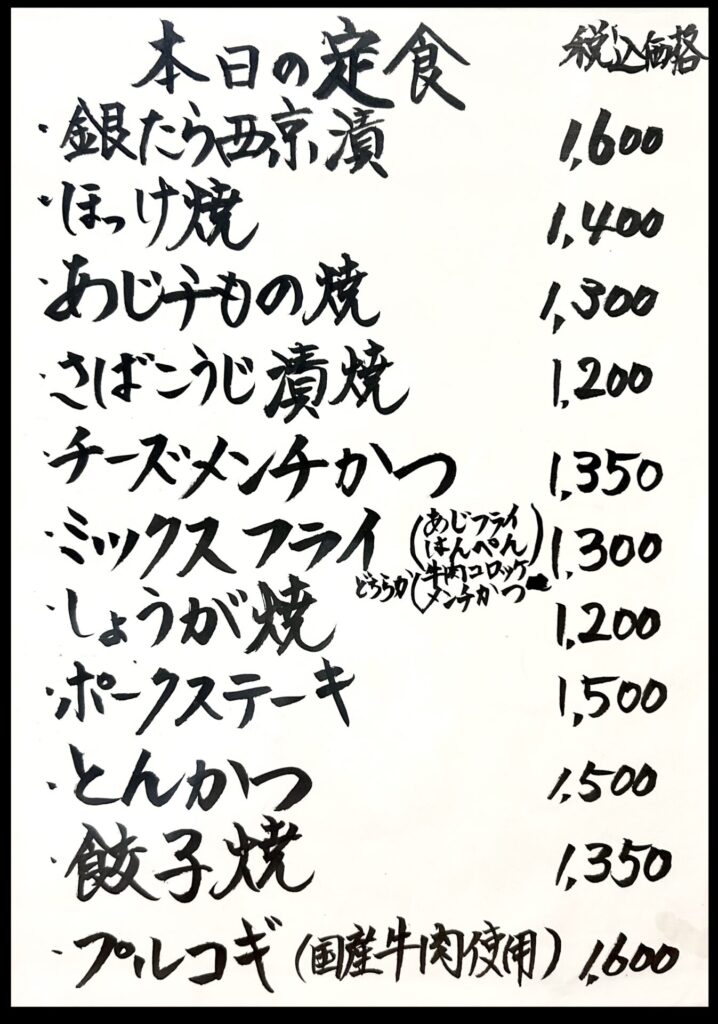 本日の定食 税込価格
・銀たら西京漬 1,600
・ほっけ焼 1,400
・あじ干もの焼 1,300
・さばこうじ漬焼 1,200
・チーズメンチかつ 1,350
・ミックスフライ (あじフライ はんぺん) 1,300
どちらか(牛肉コロッケ メンチかつ
・しょうが焼 1,200
・ポークステーキ 1,500
・とんかつ 1,500
・餃子焼 1,350
・プルコギ(国産牛肉使用) 1,600